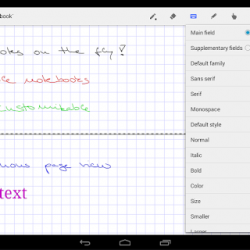 book
on the fly!
notebooks
page now
text
Main field
Supplementary fields
Default family
Sans serif
Serif
Monospace
Default style
Normal
Italic
Bold
Color
Size
Smaller
Larger